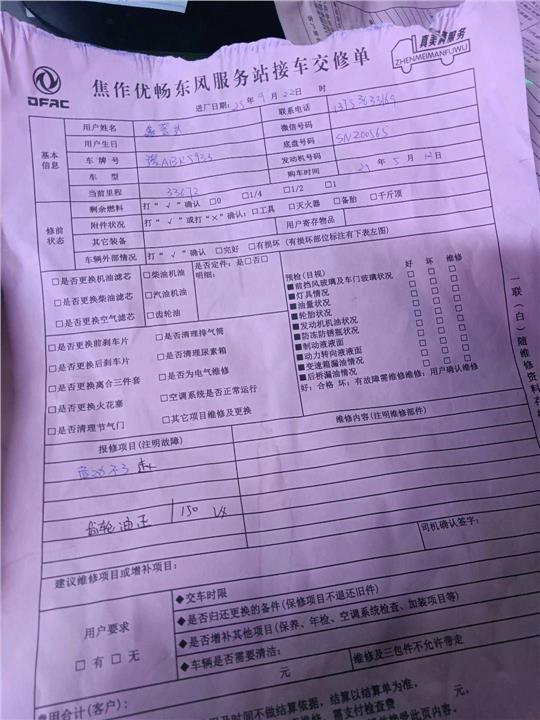 DFAC
焦作优畅东风服务站接车交修单
真美满服务
ZHENMEIMANFUWU
进厂日期: 25 年 9 月 22日 时
基本信息
用户姓名
联系电话
用户生日
微信号码
车牌号 豫ABK5933
底盘号码 SN200565
车型
发动机号码
当前里程 33672
购车时间 年 5 月 12 日
修前状态
剩余燃料 打“√”确认 □0 □1/4 □1/2 □1
附件状况 打“√”或打“×”确认: □工具 □灭火器 □备胎 □千斤顶
其它装备 用户寄存物品
车辆外部情况 打“√”确认 □完好 □有损坏 (有损坏部位标注有下表左图)
□是否更换机油滤芯 □柴油机油 是否定件: 是□否□
□是否更换柴油滤芯 □汽油机油 明细:
□是否更换空气滤芯 □齿轮油
预检(目视) 好 坏 维修
■前挡风玻璃及车门玻璃状况 □ □ □
■灯具情况 □ □ □
■油量状况 □ □ □
■轮胎状况 □ □ □
■发动机机油状况 □ □ □
■防冻防锈瓶状况 □ □ □
■制动液液面 □ □ □
■动力转向液液面 □ □ □
■变速箱漏油情况 □ □ □
■后桥漏油情况 □ □ □
好: 合格 坏: 有故障需维修维修: 用户确认维修
□是否更换前刹车片 □是否清理排气筒
□是否更换后刹车片 □是否清理尿素箱
□是否更换离合三件套 □是否为电气维修
□是否更换火花塞 □空调系统是否正常运行
□是否清理节气门 □其它项目维修及更换
一联(白)随维修资料存档
报修项目(注明故障)
维修内容(注明维修部件)
齿轮油 150
司机确认签字:
建议维修项目或增补项目:
用户要求
□ 有 □ 无
◆交车时限
◆是否归还更换的备件(保修项目不退还旧件)
◆是否增补其他项目(保养、年检、空调系统检查、加装项目等)
◆车辆是否需要清洁:
维修及三包件不允许带走
费用合计(客户): 元
时间不做结算依据, 结算以结算单为准,
需支付检查费 元,